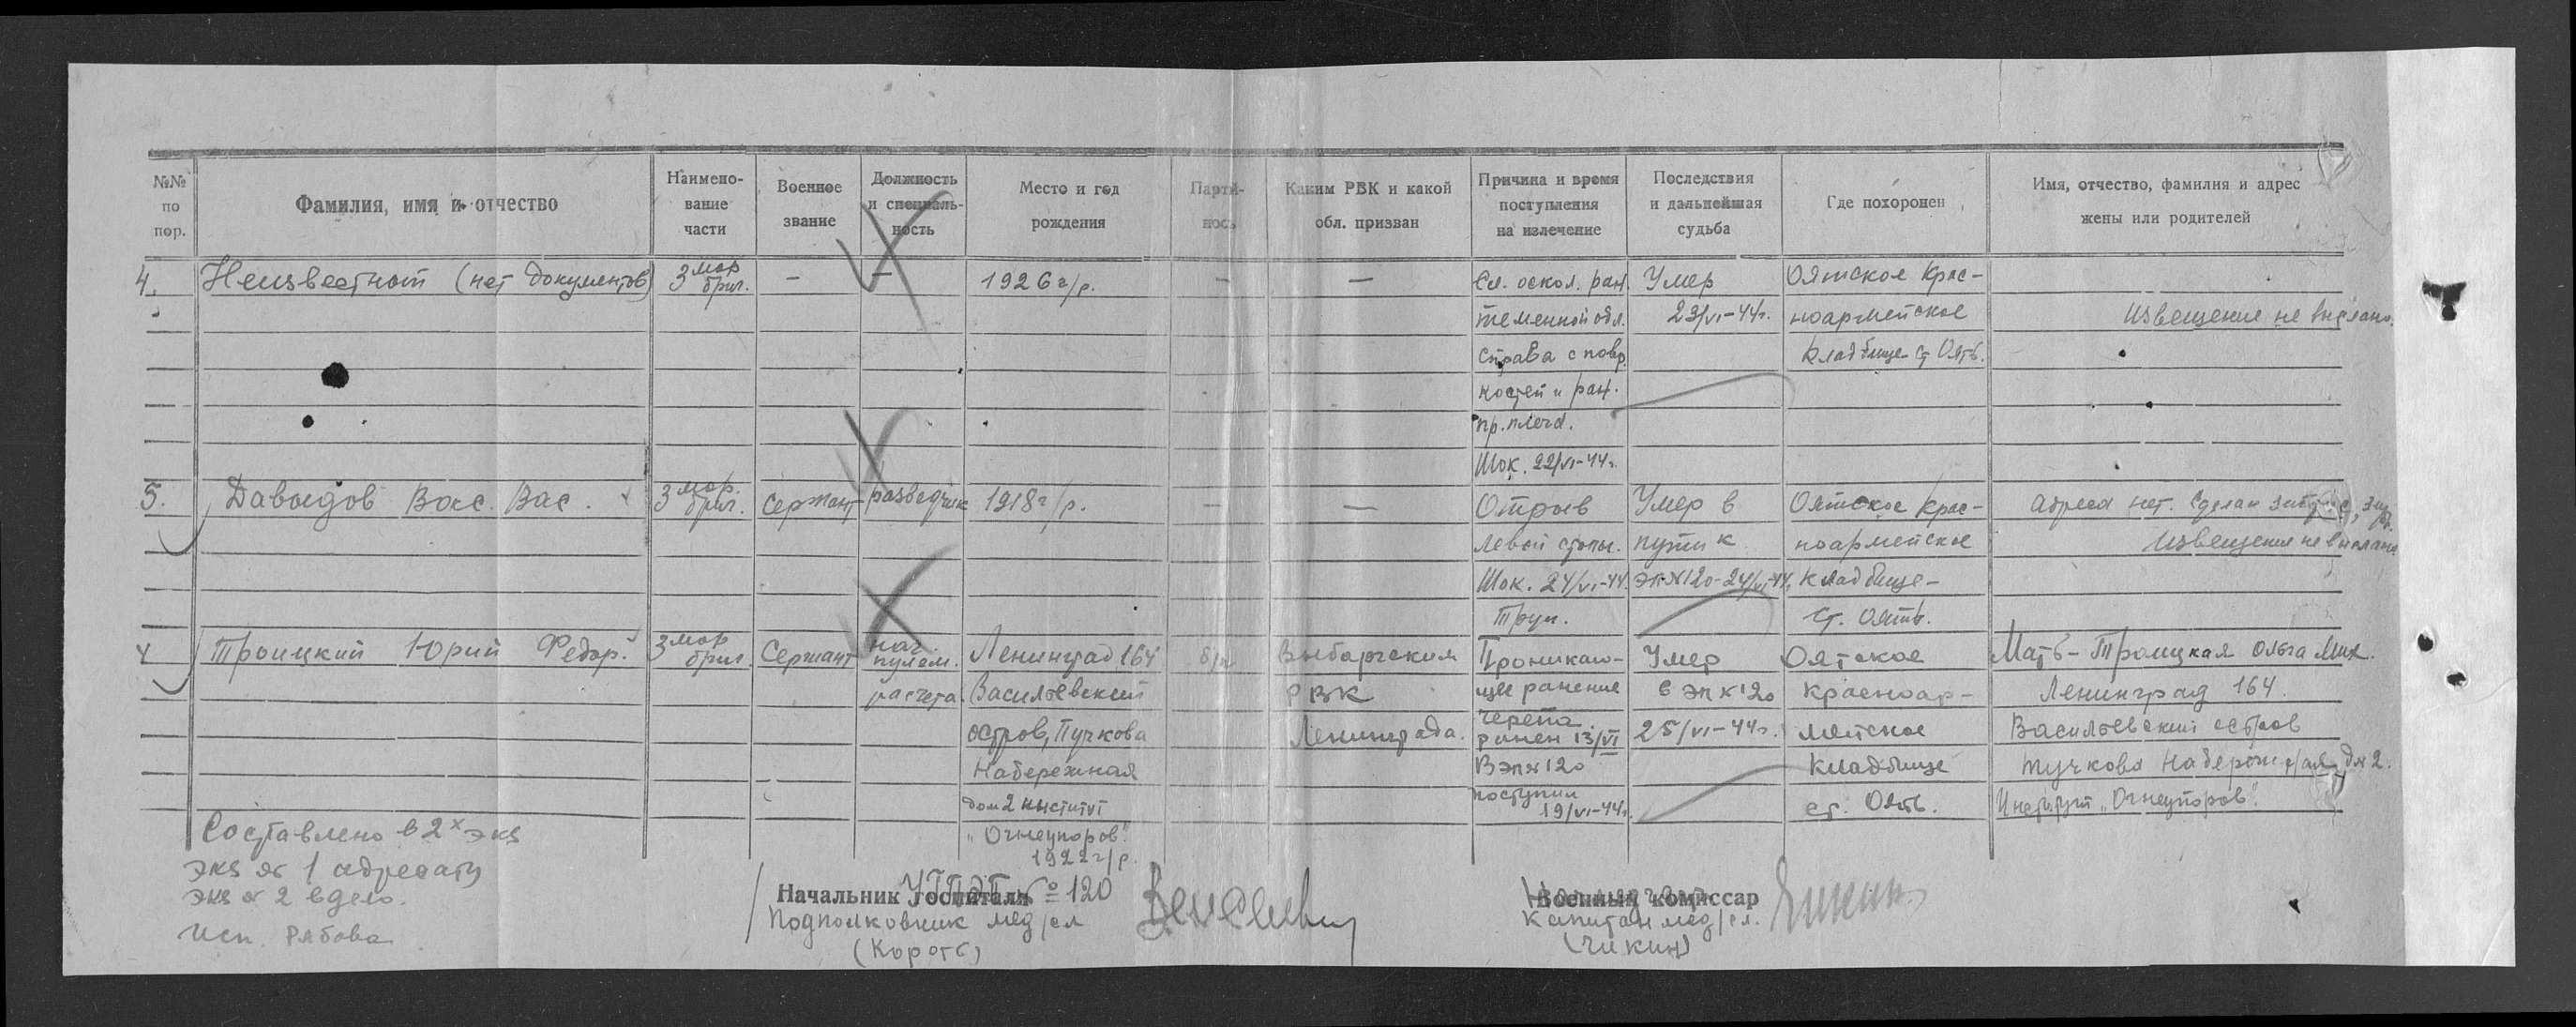 №№ по пор.
Фамилия, имя и отчество
Наимено- вание части
Военное звание
Должность и специаль- ность
Место и год рождения
Партий- ность
Каким РВК и какой обл. призван
Причина и время поступления на излечение
Последствия и дальнейшая судьба
Где похоронен
Имя, отчество, фамилия и адрес жены или родителей
4. Неизвестной (нет документов) 3 мор бриг. — — 1926 г/р. — — Сл. оскол. ран. Умер Оятское Крас-
теменной обл. 23/VI-44г. ноармейское Извещение не выслано.
справа с повр. кладбище ст Оять.
костей и ран.
пр. плеча.
Шок. 22/VI-44г.
5. Давыдов Вас. Вас. 3 мор. бриг. Сержант разведчик 1918 г/р. — — Отрыв Умер в Оятское Крас- Адреса нет. Сделан
левой стопы. пути к ноармейское Извещение не выслано
Шок. 24/VI-44. ЭП №120-24/VI-44. кладбище-
Труп. ст. Оять.
Троицкий Юрий Федор. 3 мор бриг Сержант нач. пулем. Ленинград 164 б/п Выборгским Проникаю- Умер Оятское Мать-Троицкая Ольга Мих.
расчета. Васильевский РВК щее ранение в ЭП №120 Красноар- Ленинград 164.
остров, Пучкова Ленинграда. черепа ранен 13/VI 25/VI-44г. мейское Васильевский остров
Набережная В ЭП №120 кладбище Пучкова Набережная д № 2.
дом 2 институт поступил 19/VI-44г. ст. Оять. Институт „Огнеупоров".
„Огнеупоров".
1922 г/р.
Составлено в 2х экз
экз № 1 адресату
экз № 2 в дело.
исп. Рябова
Начальник госпиталя № 120
Подполковник мед/сл
(Коротъ)
Военный комиссар
Капитан мед/сл.
(Чикин)